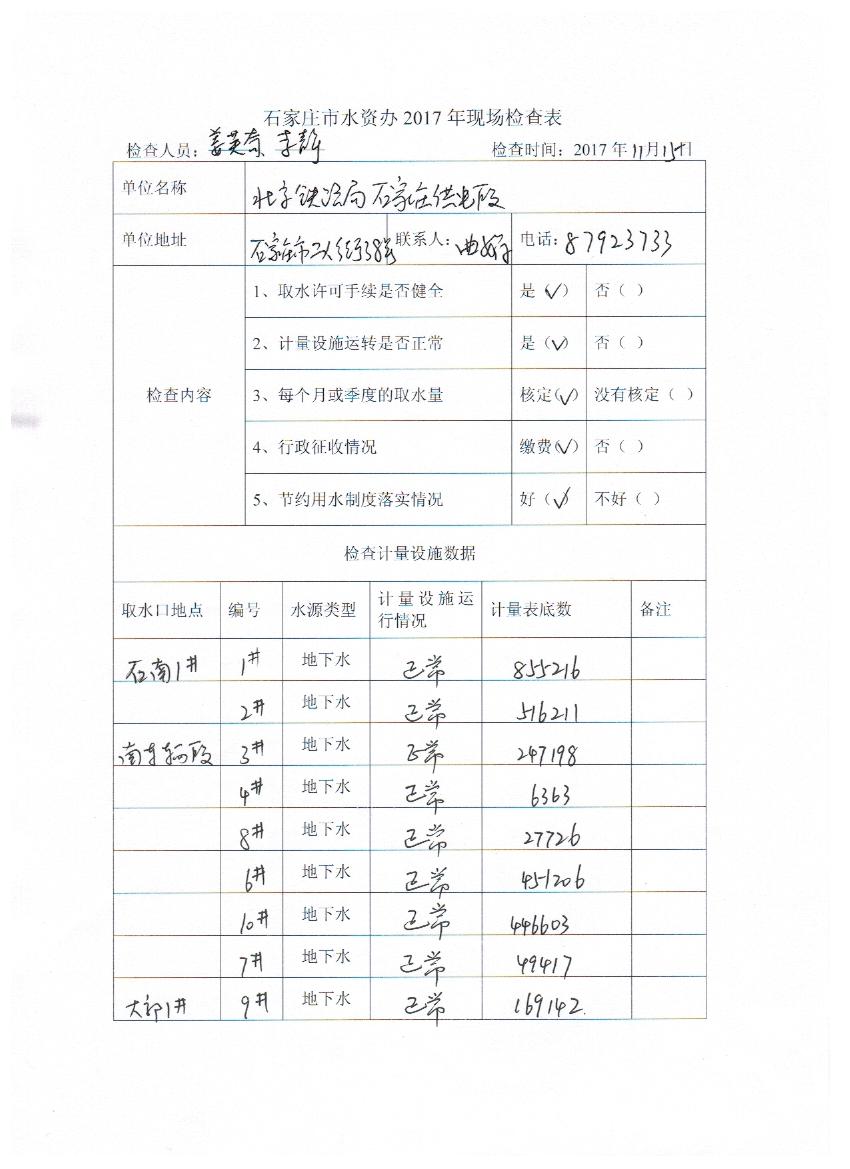 石家庄市水资办 2017 年现场检查表
检查人员：姜英奇 李静 检查时间：2017 年 11 月 15 日
单位名称 北京铁路局石家庄供电段
单位地址 石家庄市 38号 联系人：曲 电话：87923733
检查内容
1、取水许可手续是否健全 是（√） 否（ ）
2、计量设施运转是否正常 是（√） 否（ ）
3、每个月或季度的取水量 核定（√） 没有核定（ ）
4、行政征收情况 缴费（√） 否（ ）
5、节约用水制度落实情况 好（√） 不好（ ）
检查计量设施数据
取水口地点 编号 水源类型 计量设施运行情况 计量表底数 备注
石南1# 1# 地下水 正常 855216
2# 地下水 正常 516211
南车辆段 3# 地下水 正常 247198
4# 地下水 正常 6363
8# 地下水 正常 27726
6# 地下水 正常 451206
10# 地下水 正常 446603
7# 地下水 正常 49417
大郭1# 9# 地下水 正常 169142.